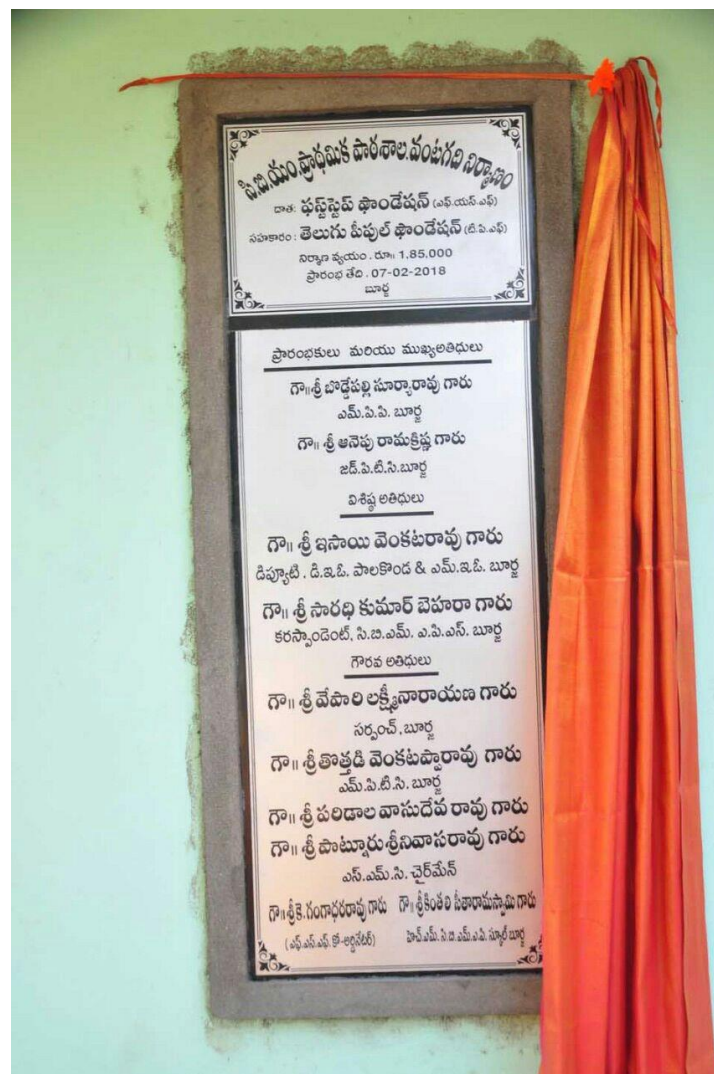 సి.బి.యం.ప్రాథమిక పాఠశాల.వంటగది నిర్మాణం
దాత: ఫస్ట్‌స్టెప్ ఫౌండేషన్ (ఎఫ్.యస్.ఎఫ్)
సహకారం : తెలుగు పీపుల్ ఫౌండేషన్ (టి.పి.ఎఫ్)
నిర్మాణ వ్యయం . రూ॥ 1,85,000
ప్రారంభ తేది . 07-02-2018
బూర్జ
ప్రారంభకులు మరియు ముఖ్యఅతిధులు
గౌ॥శ్రీ బొడ్డేపల్లి సూర్యారావు గారు
ఎమ్.పి.పి. బూర్జ
గౌ॥ శ్రీ ఆనెపు రామక్రిష్ణ గారు
జడ్.పి.టి.సి.బూర్జ
విశిష్ఠ అతిధులు
గౌ॥ శ్రీ ఇసాయి వెంకటరావు గారు
డిప్యూటి . డి.ఇ.ఓ. పాలకొండ & ఎమ్.ఇ.ఓ. బూర్జ
గౌ॥ శ్రీ సారధి కుమార్ బెహరా గారు
కరస్పాండెంట్, సి.బి.ఎమ్. ఎ.పి.ఎస్. బూర్జ
గౌరవ అతిధులు
గౌ॥ శ్రీ వేపారి లక్ష్మీనారాయణ గారు
సర్పంచ్.బూర్జ
గౌ॥ శ్రీతొత్తడి వెంకటప్పారావు గారు
ఎమ్.పి.టి.సి. బూర్జ
గౌ॥ శ్రీ పరిడాల వాసుదేవ రావు గారు
గౌ॥ శ్రీ పొట్నూరు శ్రీనివాసరావు గారు
ఎస్.ఎమ్.సి. చైర్‌మేన్
గౌ॥శ్రీకె.గంగాధరరావు గారు గౌ॥శ్రీకింతలి సీతారామస్వామి గారు
(ఎఫ్.ఎస్.ఎఫ్. కో-ఆర్డినేటర్) హెచ్.ఎమ్. సి.బి.ఎమ్.ఎ.పి. స్కూల్ బూర్జ